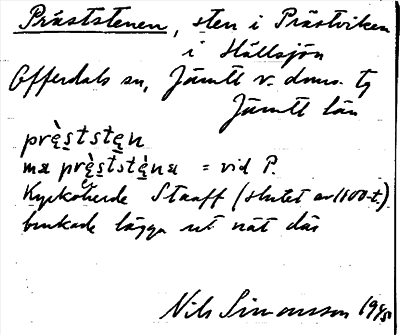 Präststenen, sten i Prästviken
i Hällsjön
Offerdals sn, Jämtl v. doms. Tg
Jämtl län
prę̀ststen
ma prę̀ststéna = vid P.
Kyrkoherde Staaff (slutet av 1100-t.)
brukade lägga ut nät där
Nils Simonsson 1945